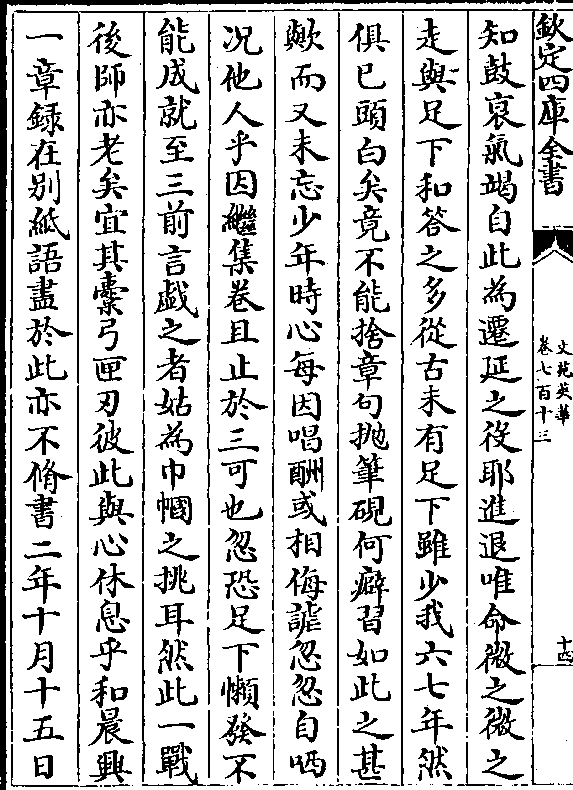 欽定四庫全書
文苑英華
卷七百十三
十四
知鼓裒氣竭自此為遷延之役耶進退唯命微之微之
走與足下和答之多從古未有足下雖少我六七年然
俱已頭白矣竟不能捨章句抛筆硯何癖習如此之甚
歟而又未忘少年時心每因唱酬或相侮謔忽忽自哂
况他人乎因繼集卷且止於三可也忽恐足下懶發不
能成就至三前言戲之者姑為巾幗之挑耳然此一戰
後師亦老矣宜其櫜弓匣刃彼此與心休息乎和晨興
一章録在别紙語盡於此亦不脩書二年十月十五日